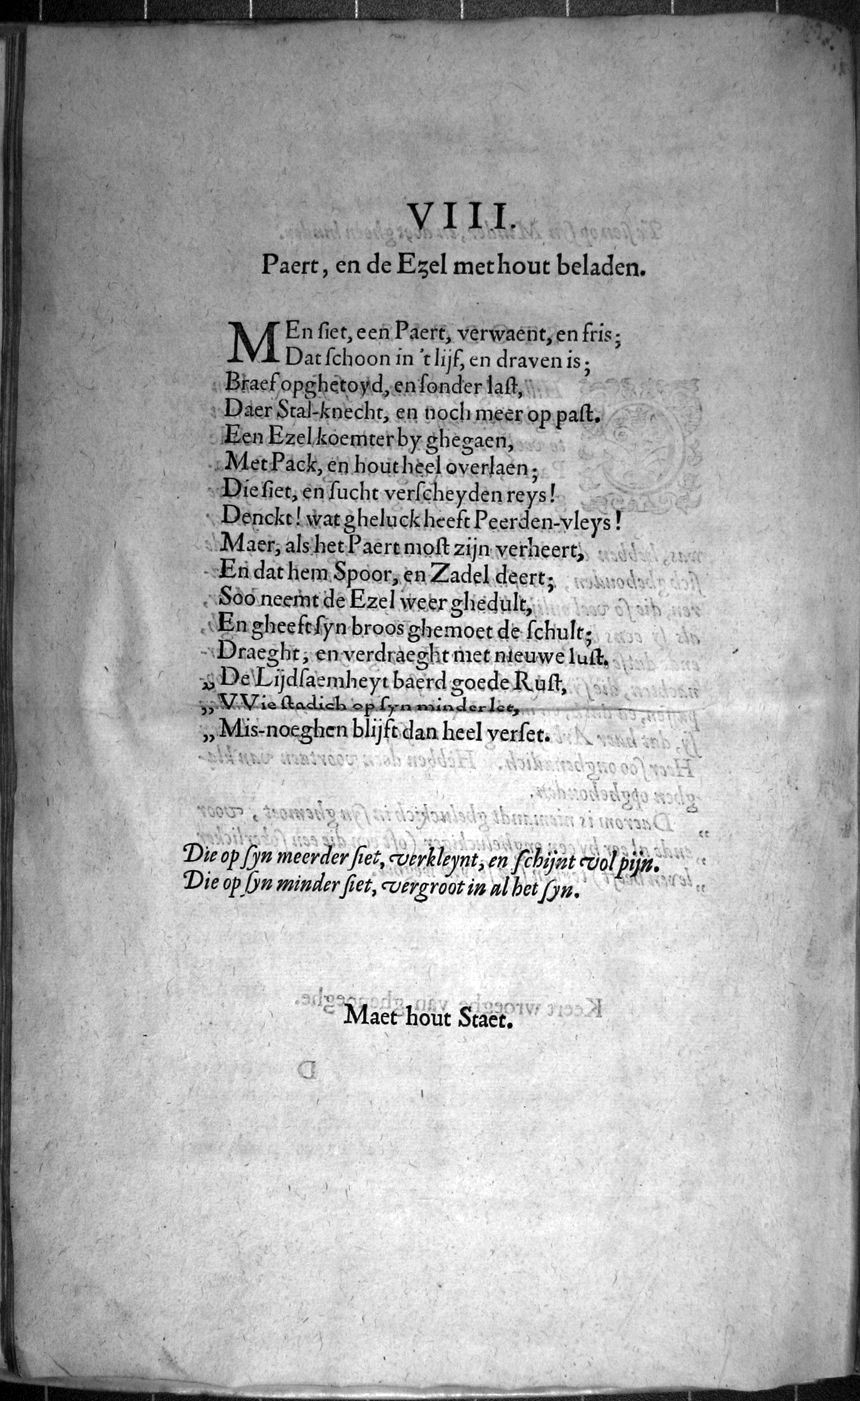 VIII.
Paert, en de Ezel met hout beladen.
MEn ſiet, een Paert, verwaent, en fris;
Dat ſchoon in 't lijf, en draven is;
Braef opghetoyd, en ſonder laſt,
Daer Stal-knecht, en noch meer op paſt.
Een Ezel koemter by ghegaen,
Met Pack, en hout heel overlaen;
Die ſiet, en ſucht verſcheyden reys!
Denckt! wat gheluck heeft Peerden-vleys!
Maer, als het Paert moſt zijn verheert,
En dat hem Spoor, en Zadel deert;
Soo neemt de Ezel weer ghedult,
En gheeft ſyn broos ghemoet de ſchult;
Draeght, en verdraeght met nieuwe luſt.
„ De Lijdſaemheyt baerd goede Ruſt,
„ VVie ſtadich op ſyn minder let,
„ Mis-noeghen blijft dan heel verſet.
Die op ſyn meerder ſiet, verkleynt, en ſchijnt vol pijn.
Die op ſyn minder ſiet, vergroot in al het ſyn.
Maet hout Staet.